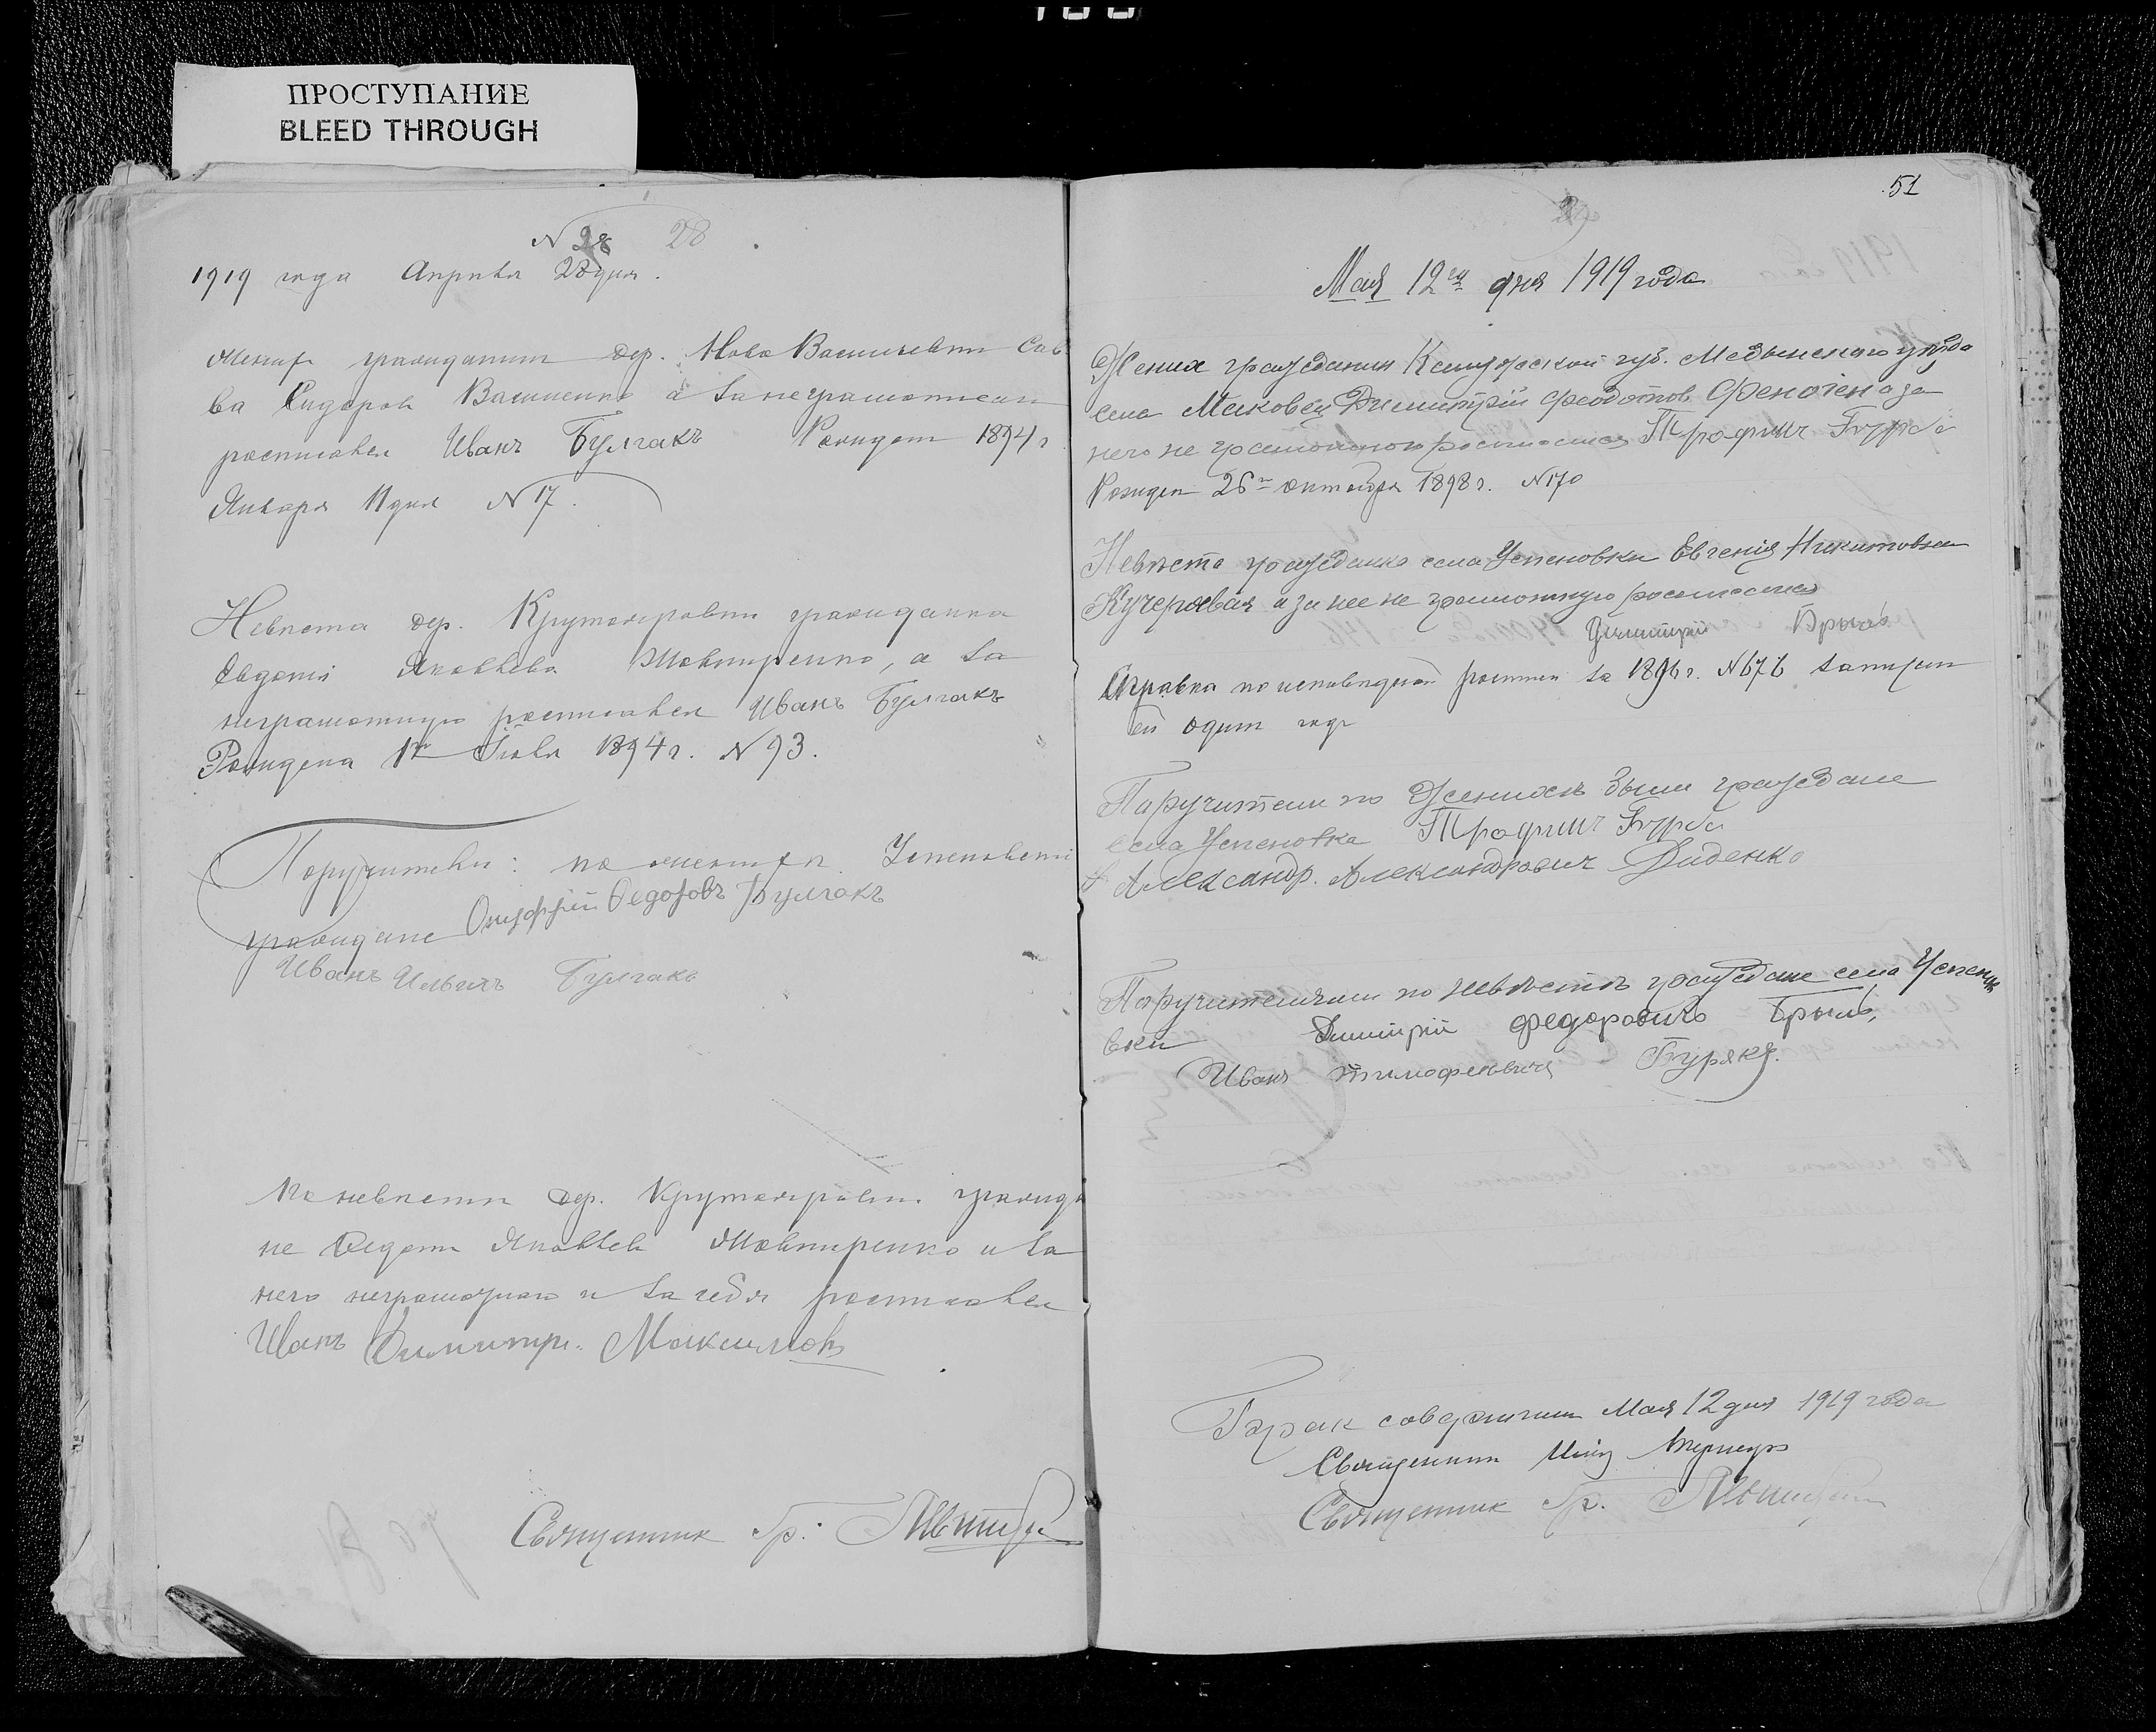 ПРОСТУПАНИЕ
BLEED THROUGH
N 28 28
1919 года Апреля 28 дня.
Жених гражданин дер. Ново Васильевки Сав
ва Сидоров Василенко а за неграмотного
росписался Иванъ Булгакъ Рожден 1894 г
Января 11 дня N 17.
Невеста дер. гражданка
Евдокия Яковлева Жовтиренко, а за
неграмотную росписался Иванъ Булгакъ
Рождена 1го 1894 г. N 93.
Поручители: по жениху Успеновки
граждане Онуфрій Федоровъ Булгакъ
Иванъ Ильичъ Булгакъ
По невести дер. гражда
не Яковлев Жовтиренко и за
него неграмотного и за себя росписался
Иванъ Димитр. Максимов
Священник Гр.
51
Мая 12го дня 1919 года
Жених гражданин Калужской губ. Медынского уезда
села Маковец Димитрій Феодотов а за
него не грамотного росписался Трофим Бурба
Рожден 26го октября 1898 г. N 170
Невеста гражданка села Успеновки Евгенія Никитовна
Кучерявая а за нее не грамотную росписался
Димитрій Брыль
Справка по исповедной росписи за 1896 г. N 676 записан
ей один год
Поручители по Женихе были граждане
села Успеновка Трофим Бурба
Александр. Александрович Диденко
Поручителями по невесте граждане села Успено
вки Димитрій Федоровичъ Брыль,
Иван Тимофеевич Бурякъ.
Брак совершили Мая 12 дня 1919 года
Священник
Священник Гр.